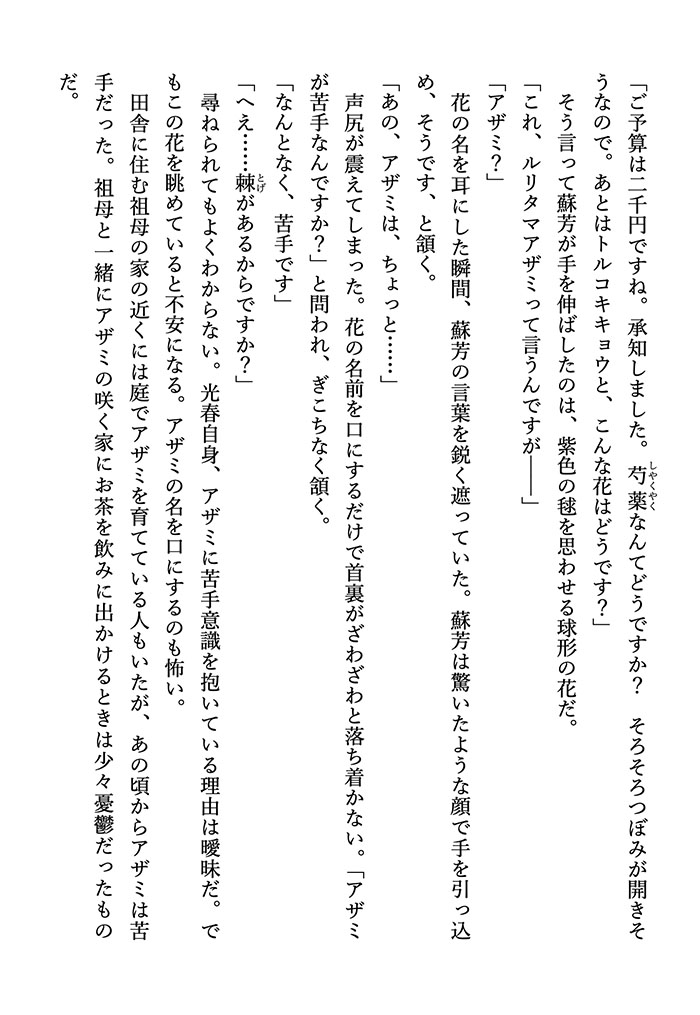 「ご予算は二千円ですね。承知しました。芍薬なんてどうですか？　そろそろつぼみが開きそ
うなので。あとはトルコキキョウと、こんな花はどうです？」
　そう言って蘇芳が手を伸ばしたのは、紫色の毬を思わせる球形の花だ。
「これ、ルリタマアザミって言うんですが――」
「アザミ？」
　花の名を耳にした瞬間、蘇芳の言葉を鋭く遮っていた。蘇芳は驚いたような顔で手を引っ込
め、そうです、と頷く。
「あの、アザミは、ちょっと……」
　声尻が震えてしまった。花の名前を口にするだけで首裏がざわざわと落ち着かない。「アザミ
が苦手なんですか？」と問われ、ぎこちなく頷く。
「なんとなく、苦手です」
「へえ……棘があるからですか？」
　尋ねられてもよくわからない。光春自身、アザミに苦手意識を抱いている理由は曖昧だ。で
もこの花を眺めていると不安になる。アザミの名を口にするのも怖い。
　田舎に住む祖母の家の近くには庭でアザミを育てている人もいたが、あの頃からアザミは苦
手だった。祖母と一緒にアザミの咲く家にお茶を飲みに出かけるときは少々憂鬱だったもの
だ。
しやくやく
とげ